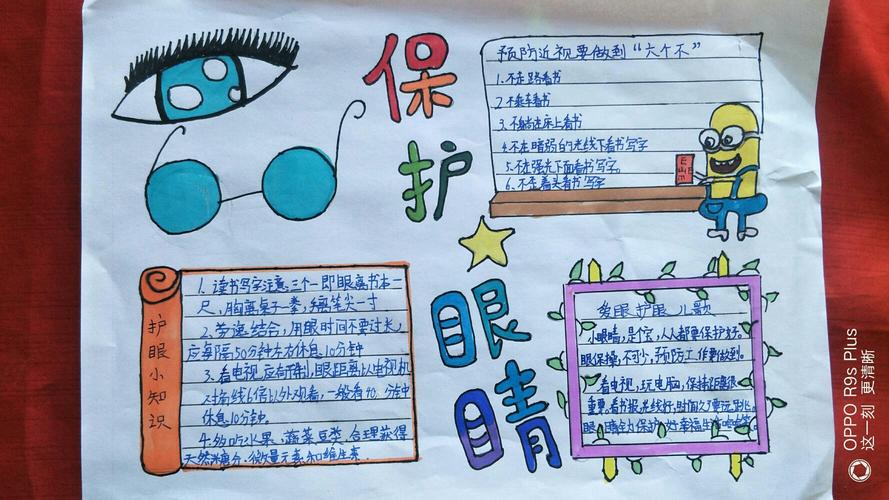 保护
眼睛
预防近视要做到“六个不”
1.不走路看书
2.不乘车看书
3.不躺在床上看书
4.不在暗弱的光线下看书写字
5.不在强光下面看书写字。
6.不歪着头看书写字
护眼小知识
1.读书写字注意三个一即眼离书本一
尺,胸离桌子一拳,手离笔尖一寸
2.劳逸结合,用眼时间不要过长,
应每隔50分钟左右休息10分钟
3.看电视,应有节制,眼距离以电视机
对角线6倍以外观看,一般看40分钟
休息10分钟。
4.多吃水果、蔬菜豆类,合理获得
天然糖分、微量元素和维生素.
爱眼护眼儿歌
小眼睛,是个宝,人人都要保护好。
眼保操,不可少,预防工作要做到。
看电视,玩电脑,保持距离很
重要,看书报,光线好,时间久了
眼睛 保护好 幸福生活
OPPO R9s Plus
这一刻 更清晰